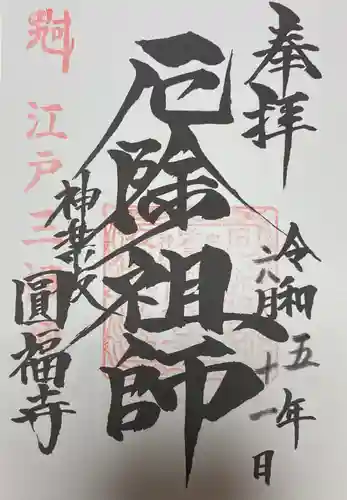 奉拝
令和五年
六八月十一日
厄除祖師
神楽坂
圓福寺
江戸三